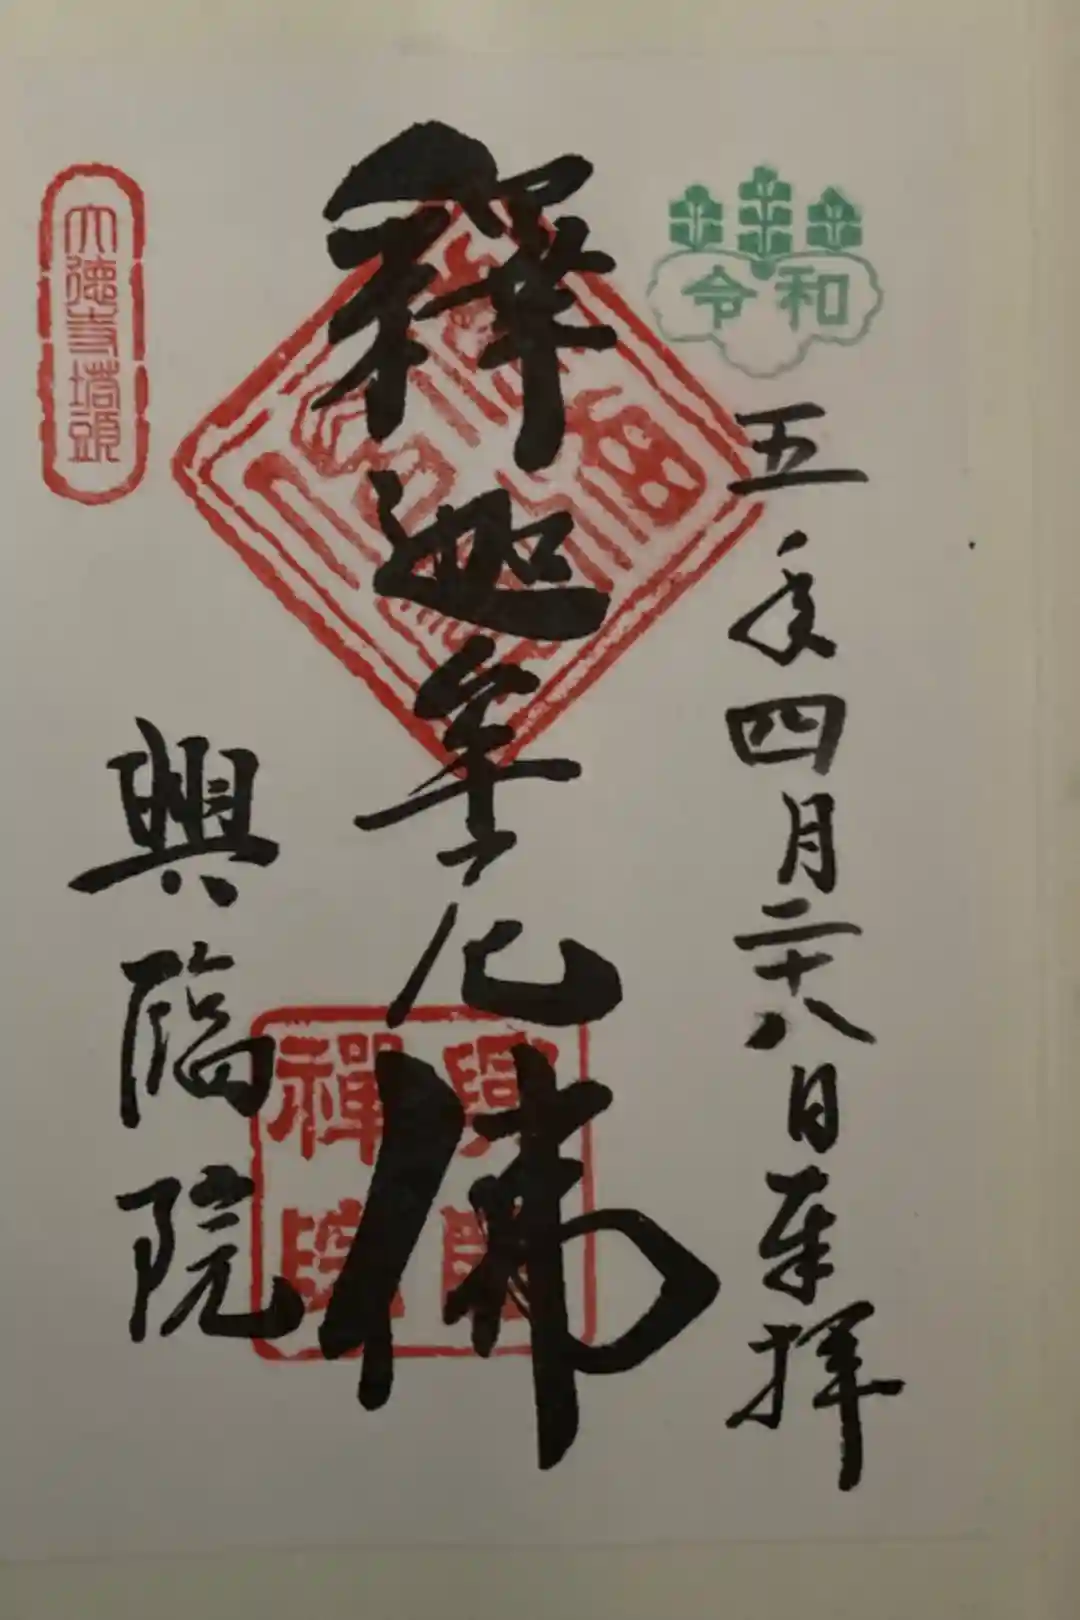 令和
五年四月二十八日奉拝
釋迦牟尼佛
興臨
禪院
大徳寺塔頭
興臨院